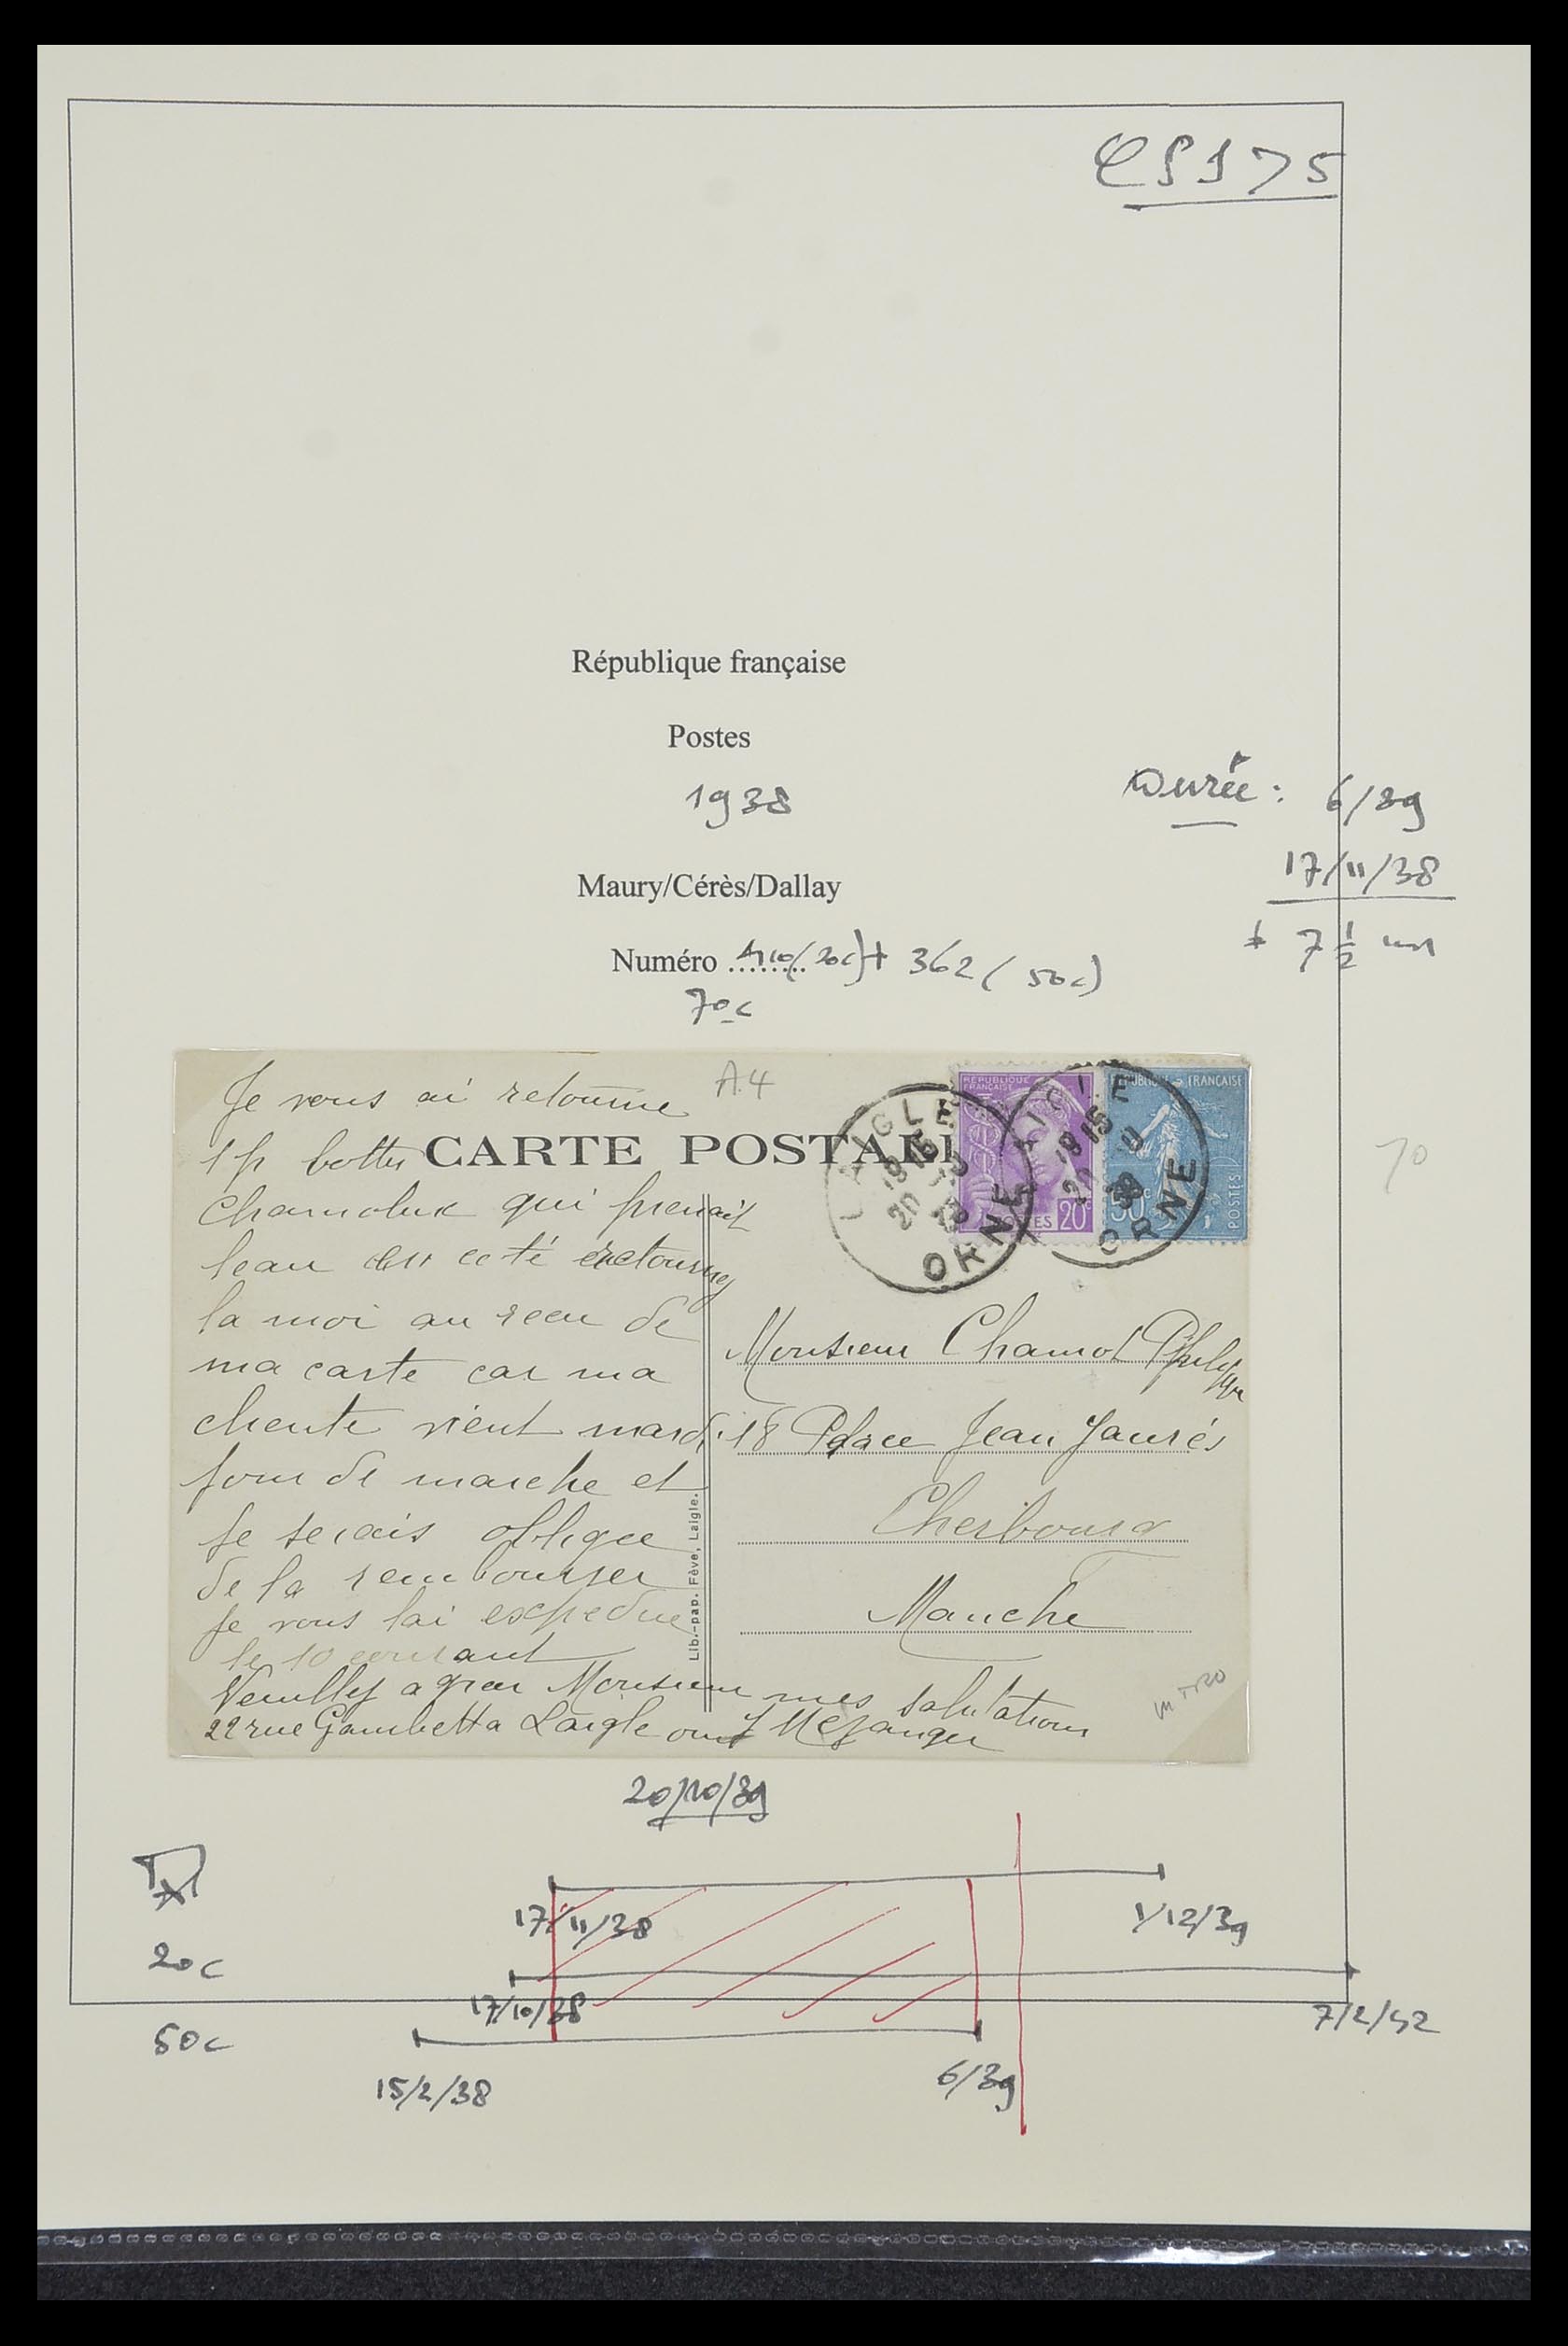 175
République française
Postes
1938
Maury/Cérès/Dallay
Numéro ........ (20c) + 362 (50c)
70c
Durée : 6/39
17/11/38
± 7 1/2
Je vous ai retourné A4
1 p bottes
CARTE POSTALE
qui prenait
leau retournez
la moi au recu de
ma carte car ma
cliente vient mardi
jour de marche et
je serais obligee
de la rembourser
je vous lai expediee
le 10 courant
Veuillez agreer Monsieur mes salutations
22 rue Gambetta Laigle orne
Lib.-pap. Fève, Laigle.
LAIGLE
18 15
20
ORNE
LAIGLE
18 15
20
ORNE
RÉPUBLIQUE FRANÇAISE
POSTES 20c
RÉPUBLIQUE FRANÇAISE
50c
POSTES
Monsieur Chamol
18 Place Jean Jaurés
Cherbourg
Manche
70
20/10/39
17/11/38 1/12/39
20c
17/10/38 7/2/42
50c
15/2/38 6/39